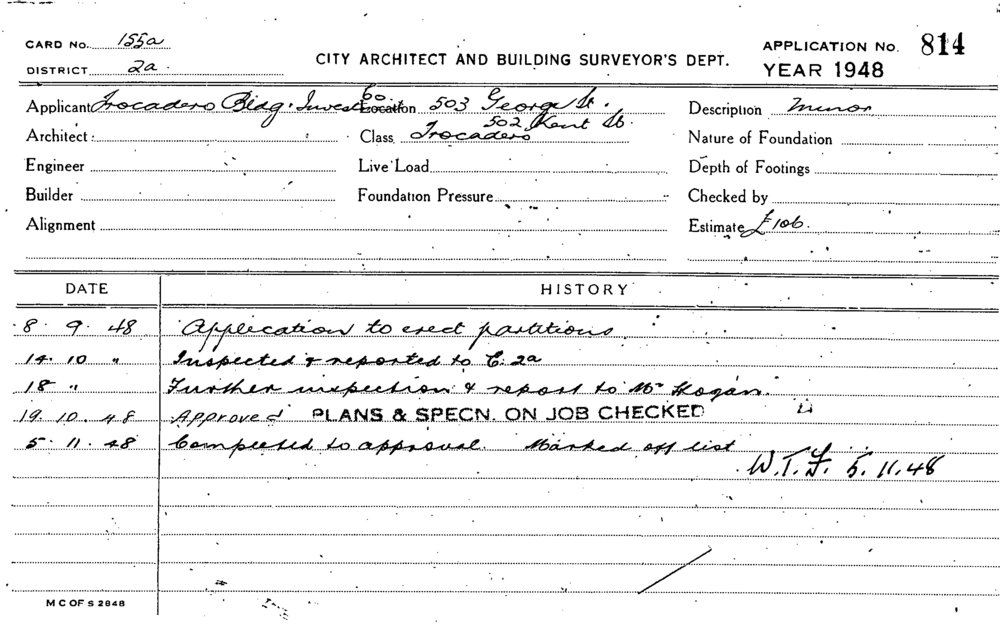 CARD NO. 155a
DISTRICT 2a.
CITY ARCHITECT AND BUILDING SURVEYOR'S DEPT.
APPLICATION NO. 814
YEAR 1948
Applicant Trocadero Bldg. Invest Co. Location 503 George St.
502 Kent St.
Description Minor
Architect :
Class Trocadero
Nature of Foundation
Engineer
Live Load
Depth of Footings
Builder
Foundation Pressure
Checked by
Alignment
Estimate £106.
DATE HISTORY
8. 9. 48 Application to erect partitions
14. 10 " Inspected & reported to C. 2a
18 " Further inspection & report to Mr Hogan.
19. 10. 48 Approved PLANS & SPECN. ON JOB CHECKED
5. 11. 48 Completed to approval. Marked off list
5. 11. 48
M C OF S 2848